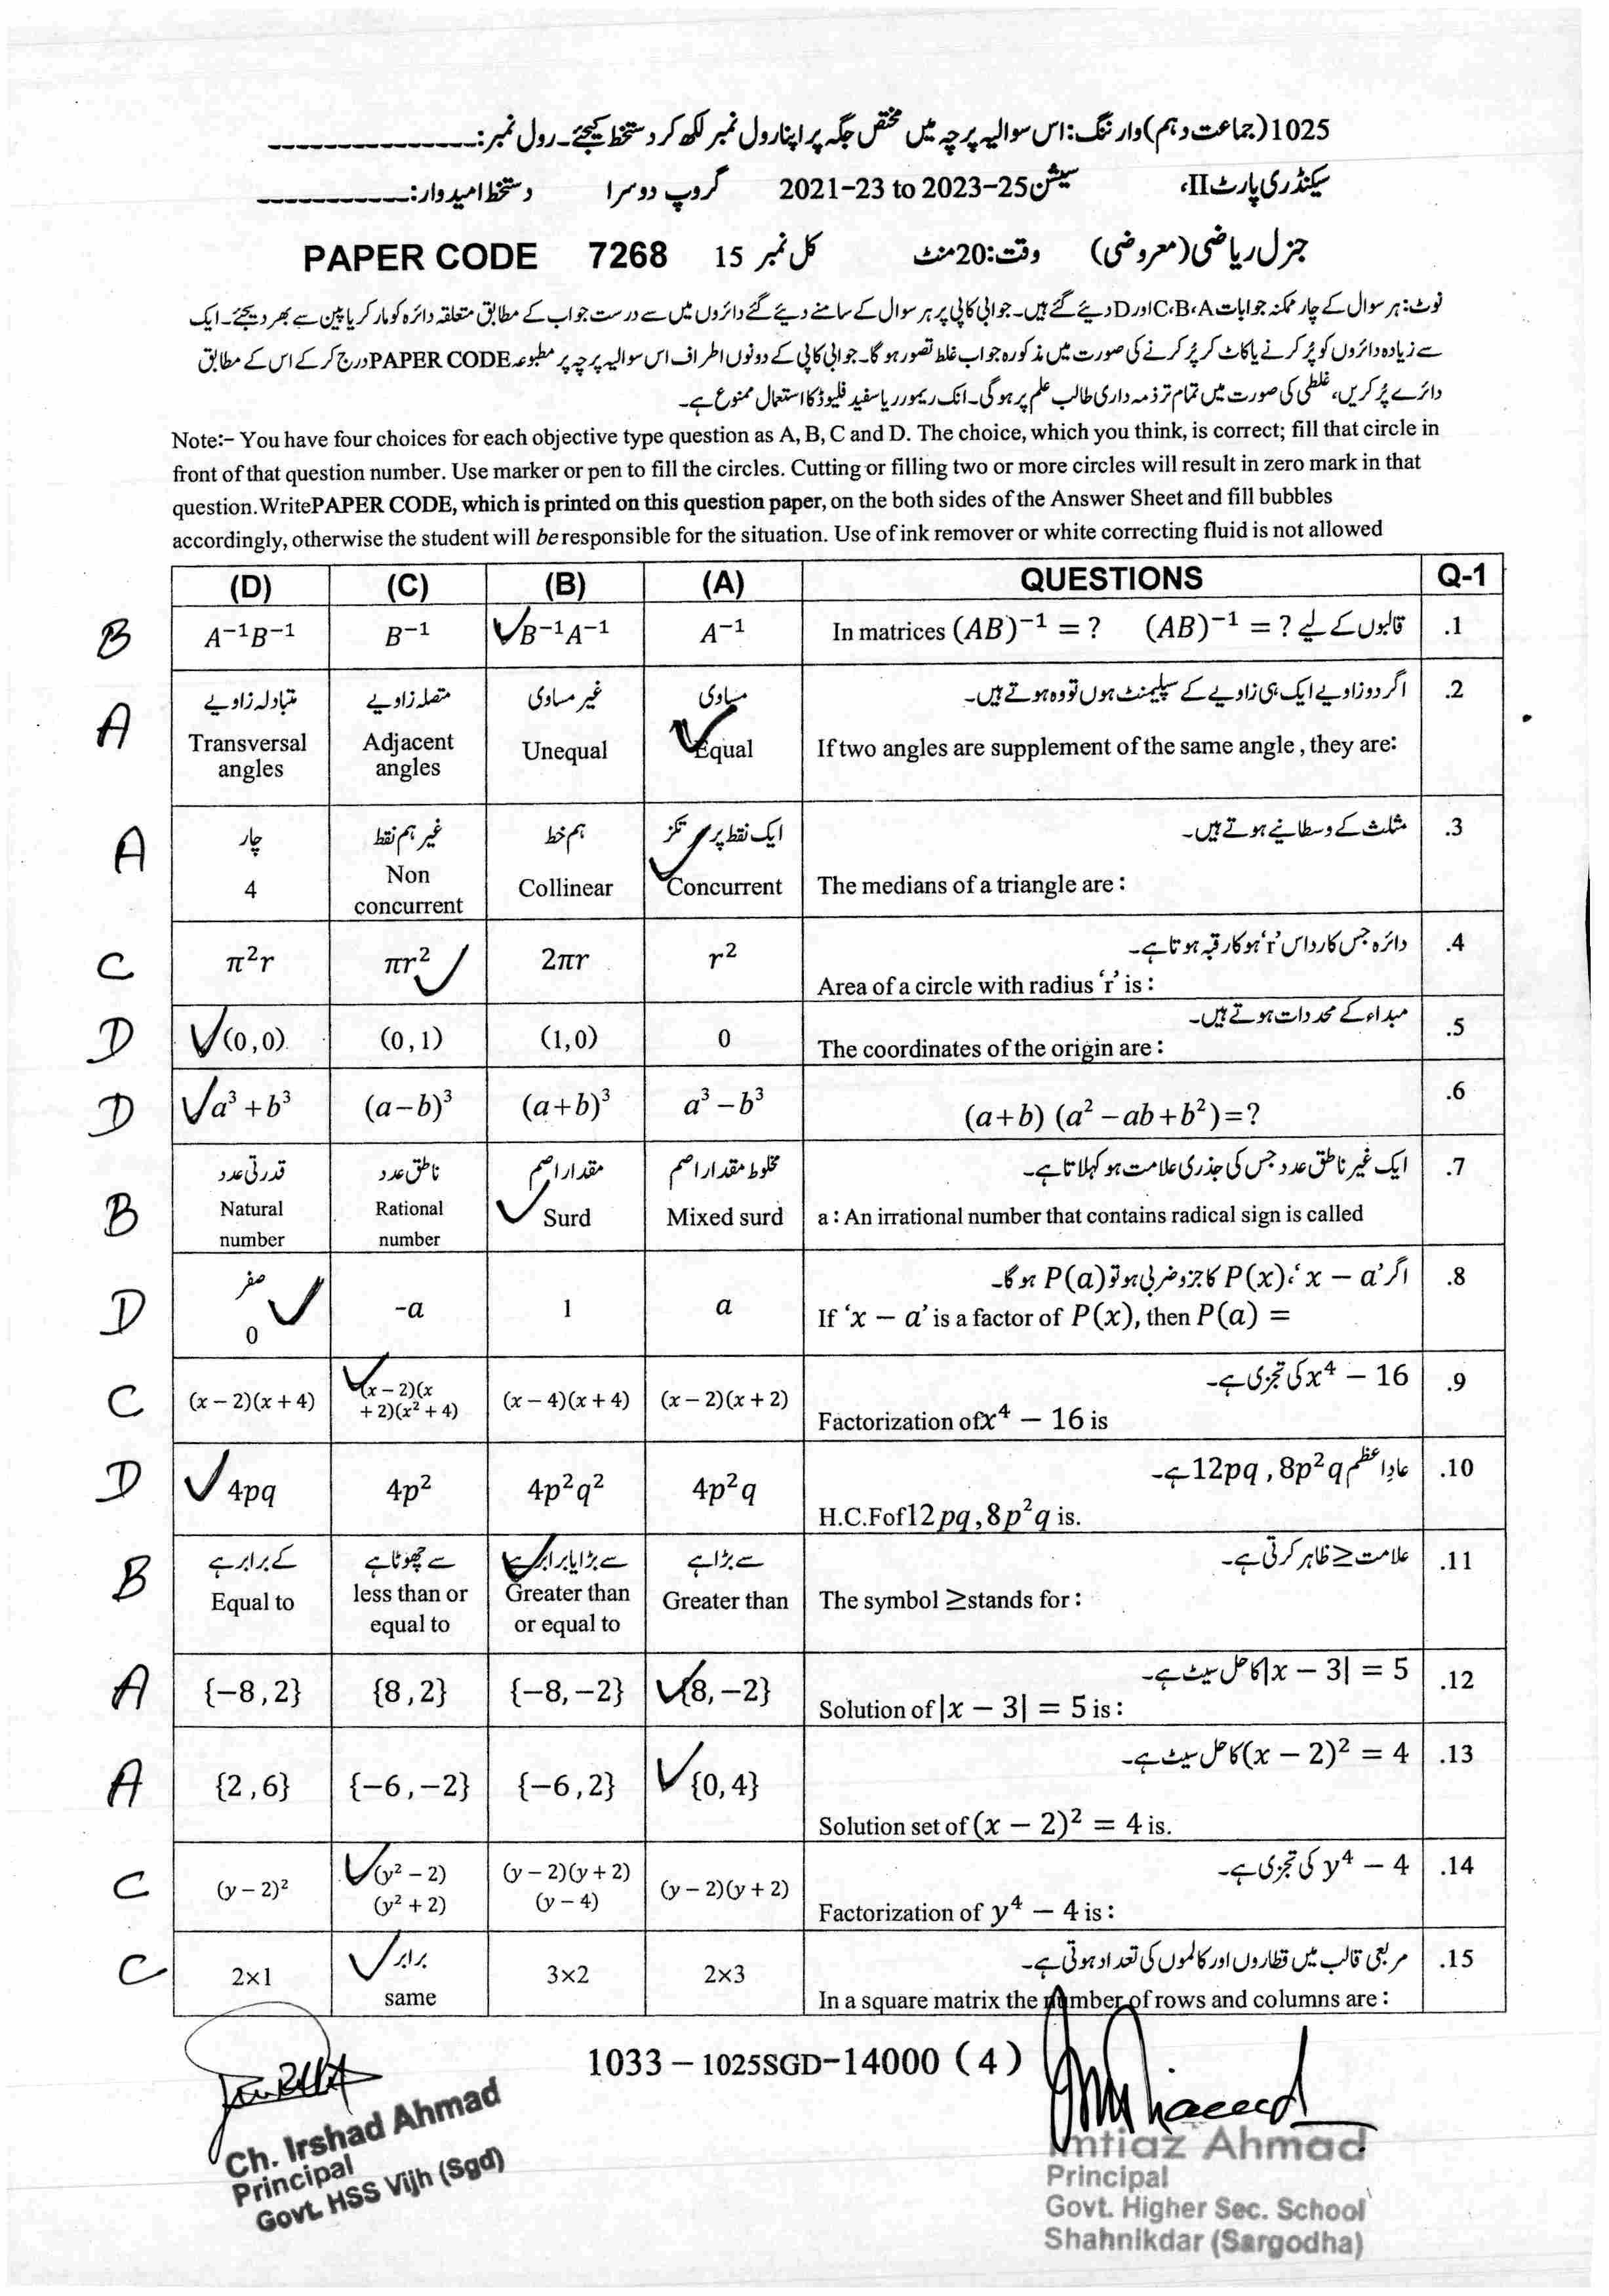 1025 (جماعت دہم) وارننگ: اس سوالیہ پرچہ میں مختص جگہ پر اپنا رول نمبر لکھ کر دستخط کیجئے۔ رول نمبر: ----------------
سیکنڈری پارٹ II، سیشن 2021-23 to 2023-25 گروپ دوسرا دستخط امیدوار: ------------
جنرل ریاضی (معروضی) وقت: 20 منٹ کل نمبر 15 PAPER CODE 7268
نوٹ: ہر سوال کے چار ممکنہ جوابات C، B، A اور D دیئے گئے ہیں۔ جوابی کاپی پر ہر سوال کے سامنے دیئے گئے دائروں میں سے درست جواب کے مطابق متعلقہ دائرہ کو مارکر یا پین سے بھر دیجئے۔ ایک
سے زیادہ دائروں کو پُر کرنے یا کاٹ کر پُر کرنے کی صورت میں مذکورہ جواب غلط تصور ہو گا۔ جوابی کاپی کے دونوں اطراف اس سوالیہ پرچہ پر مطبوعہ PAPER CODE درج کر کے اس کے مطابق
دائرے پُر کریں، غلطی کی صورت میں تمام تر ذمہ داری طالب علم پر ہو گی۔ انک ریمور یا سفید فلیوڈ کا استعمال ممنوع ہے۔
Note:- You have four choices for each objective type question as A, B, C and D. The choice, which you think, is correct; fill that circle in
front of that question number. Use marker or pen to fill the circles. Cutting or filling two or more circles will result in zero mark in that
question. WritePAPER CODE, which is printed on this question paper, on the both sides of the Answer Sheet and fill bubbles
accordingly, otherwise the student will be responsible for the situation. Use of ink remover or white correcting fluid is not allowed
(D) (C) (B) (A) QUESTIONS Q-1
B A⁻¹B⁻¹ B⁻¹ ✓B⁻¹A⁻¹ A⁻¹ In matrices (AB)⁻¹ = ? (AB)⁻¹ = ? قالبوں کے لیے .1
متبادلہ زاویے متصلہ زاویے غیر مساوی مساوی اگر دو زاویے ایک ہی زاویے کے سپلیمنٹ ہوں تو وہ ہوتے ہیں۔ .2
A Transversal angles Adjacent angles Unequal ✓Equal If two angles are supplement of the same angle, they are:
چار غیر ہم نقط ہم خط ایک نقطہ پر مثلث کے وسطانیے ہوتے ہیں۔ .3
A 4 Non concurrent Collinear ✓Concurrent The medians of a triangle are:
دائرہ جس کا رداس 'r' ہو کا رقبہ ہوتا ہے۔ .4
C π²r πr² ✓ 2πr r² Area of a circle with radius 'r' is:
مبداء کے محددات ہوتے ہیں۔ .5
D ✓(0,0) (0,1) (1,0) 0 The coordinates of the origin are:
D ✓a³+b³ (a−b)³ (a+b)³ a³−b³ (a+b) (a²−ab+b²)=? .6
قدرتی عدد ناطق عدد مقدار اصم مخلوط مقدار اصم ایک غیر ناطق عدد جس کی جذری علامت ہو کہلاتا ہے۔ .7
B Natural number Rational number ✓Surd Mixed surd a: An irrational number that contains radical sign is called
صفر اگر 'x − a'، P(x) کا جزو ضربی ہو تو P(a) ہو گا۔ .8
D 0 ✓ -a 1 a If 'x − a' is a factor of P(x), then P(a) =
x⁴ − 16 کی تجزی ہے۔ .9
C (x − 2)(x + 4) ✓(x − 2)(x + 2)(x² + 4) (x − 4)(x + 4) (x − 2)(x + 2) Factorization ofx⁴ − 16 is
عاد اعظم 12pq , 8p²q ہے۔ .10
D ✓4pq 4p² 4p²q² 4p²q H.C.Fof12pq,8p²q is.
کے برابر ہے سے چھوٹا ہے سے بڑا یا برابر ہے سے بڑا ہے علامت ≥ ظاہر کرتی ہے۔ .11
B Equal to less than or equal to ✓Greater than or equal to Greater than The symbol ≥stands for:
|x − 3| = 5 کا حل سیٹ ہے۔ .12
A {−8,2} {8,2} {−8,−2} ✓{8,−2} Solution of |x − 3| = 5 is:
(x − 2)² = 4 کا حل سیٹ ہے۔ .13
A {2,6} {−6,−2} {−6,2} ✓{0,4} Solution set of (x − 2)² = 4 is.
y⁴ − 4 کی تجزی ہے۔ .14
C (y − 2)² ✓(y² − 2)(y² + 2) (y − 2)(y + 2)(y − 4) (y − 2)(y + 2) Factorization of y⁴ − 4 is:
برابر مربعی قالب میں قطاروں اور کالموں کی تعداد ہوتی ہے۔ .15
C 2×1 ✓same 3×2 2×3 In a square matrix the number of rows and columns are:
1033 – 1025SGD–14000 (4)
Ch. Irshad Ahmad
Principal
Govt. HSS Vijh (Sgd)
Imtiaz Ahmad
Principal
Govt. Higher Sec. School
Shahnikdar (Sargodha)